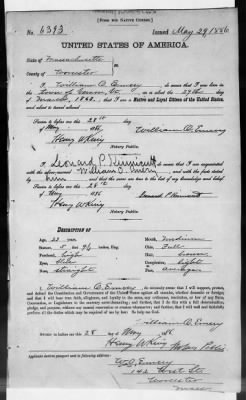 [FORM FOR NATIVE CITIZEN.]
No. 6393 Issued May 29 1886
UNITED STATES OF AMERICA.
State of Massachusetts
County of Worcester
I, William O. Emery, do swear that I was born in the
on or about the 27th day
of March, 1863; that I am a Native and Loyal Citizen of the United States,
and about to travel abroad.
Sworn to before me this 28th
day of May 1886 William O. Emery
Henry W. King
Notary Public.
I, Leonard P. Kinnicutt do swear that I am acquainted
with the above-named William O. Emery and with the facts stated
by him and that the same are true to the best of my knowledge and belief.
Sworn to before me this 28th
day of May 1886 Leonard P. Kinnicutt
Henry W. King
Notary Public.
DESCRIPTION OF
Age, 23 years. Mouth, Medium
Stature, 5 feet inches, Eng. Chin, Full
Forehead, high Hair, brown
Eyes, blue Complexion, light
Nose, straight Face, average
I, William O. Emery, do solemnly swear that I will support, protect,
and defend the Constitution and Government of the United States against all enemies, whether domestic or foreign; and
that I will bear true faith, allegiance, and loyalty to the same, any ordinance, resolution, or law of any State,
Convention, or Legislature to the contrary notwithstanding; and further, that I do this with a full
determination, pledge, and purpose, without any mental reservation or evasion whatsoever; and further, that I will well and faithfully
perform all the duties which may be required of me by law: So help me God.
William O. Emery
Sworn to before me this 28 day of May 1886
Henry W. King Notary Public
Applicant desires passport sent to following address:
W. O. Emery
142 West St.
Worcester
Mass.